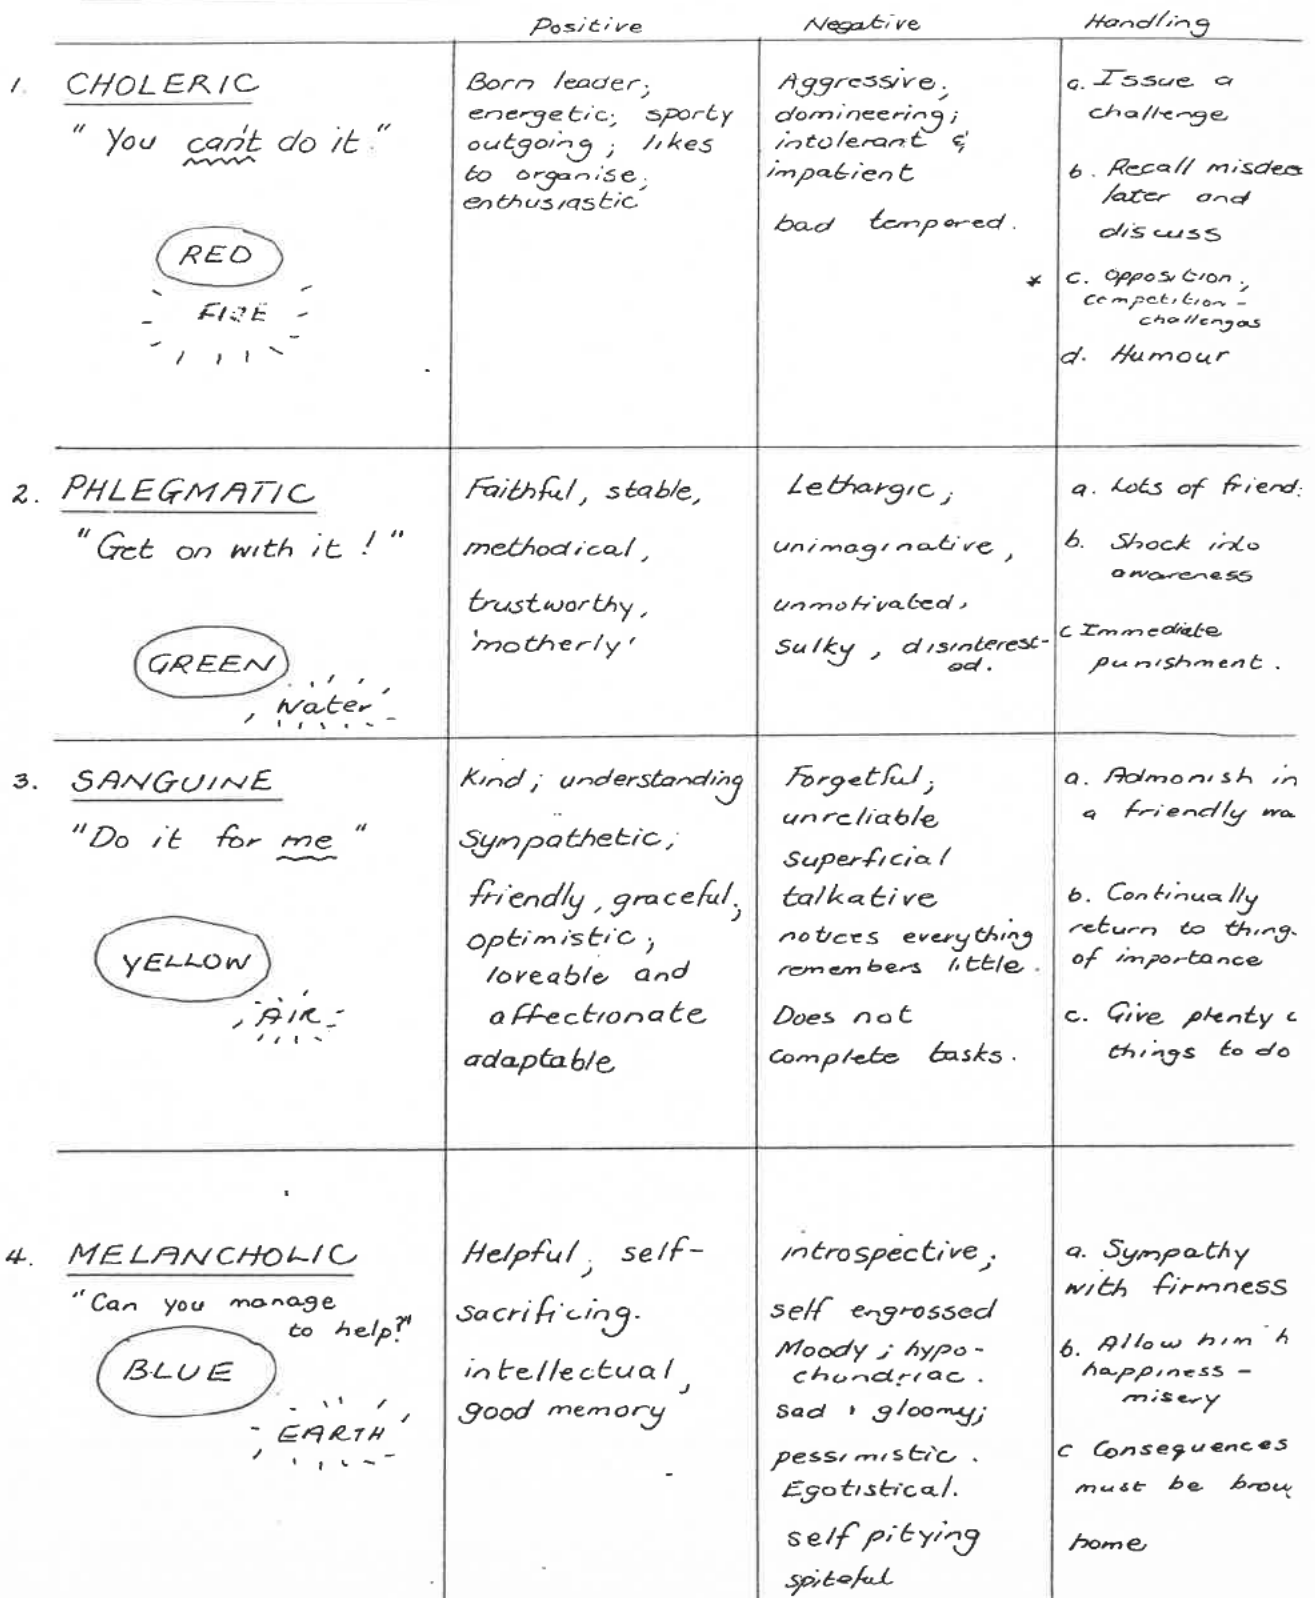 Positive Negative Handling
1. CHOLERIC
"You can't do it."
RED
FIRE
Born leader;
energetic; sporty
outgoing; likes
to organise;
enthusiastic
Aggressive;
domineering;
intolerant &
impatient
bad tempered.
a. Issue a
challenge
b. Recall misdee
later and
discuss
* c. Opposition;
competition -
challenges
d. Humour
2. PHLEGMATIC
"Get on with it!"
GREEN
Water
Faithful, stable,
methodical,
trustworthy,
'motherly'
Lethargic;
unimaginative,
unmotivated,
sulky, disinterest-
ed.
a. Lots of friend
b. Shock into
awareness
c Immediate
punishment.
3. SANGUINE
"Do it for me"
YELLOW
AIR
Kind; understanding
Sympathetic;
friendly, graceful;
optimistic;
loveable and
affectionate
adaptable
Forgetful;
unreliable
superficial
talkative
notices everything
remembers little.
Does not
complete tasks.
a. Admonish in
a friendly wa
b. Continually
return to thing
of importance
c. Give plenty
things to do
4. MELANCHOLIC
"Can you manage
to help?"
BLUE
EARTH
Helpful; self-
sacrificing.
intellectual,
good memory
introspective;
self engrossed
Moody; hypo-
chondriac.
sad, gloomy;
pessimistic.
Egotistical.
self pitying
spiteful
a. Sympathy
with firmness
b. Allow him h
happiness -
misery
c Consequences
must be brou
home